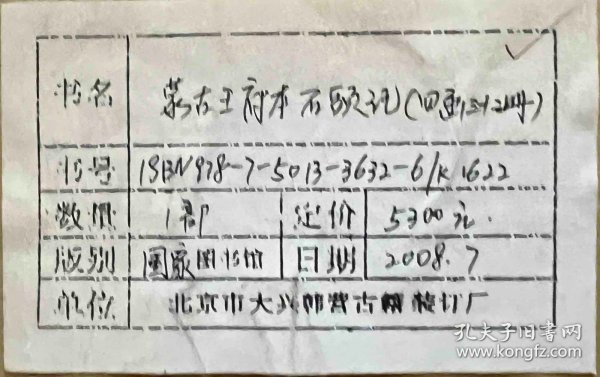 书名 蒙古王府本石头记(四函三十二册)
书号 ISBN978-7-5013-3632-6/K 1622
数量 1部 定价 5300元.
版别 国家图书馆 日期 2008.7
单位 北京市大兴韩营古籍装订厂
孔夫子旧书网
www.kongfz.com